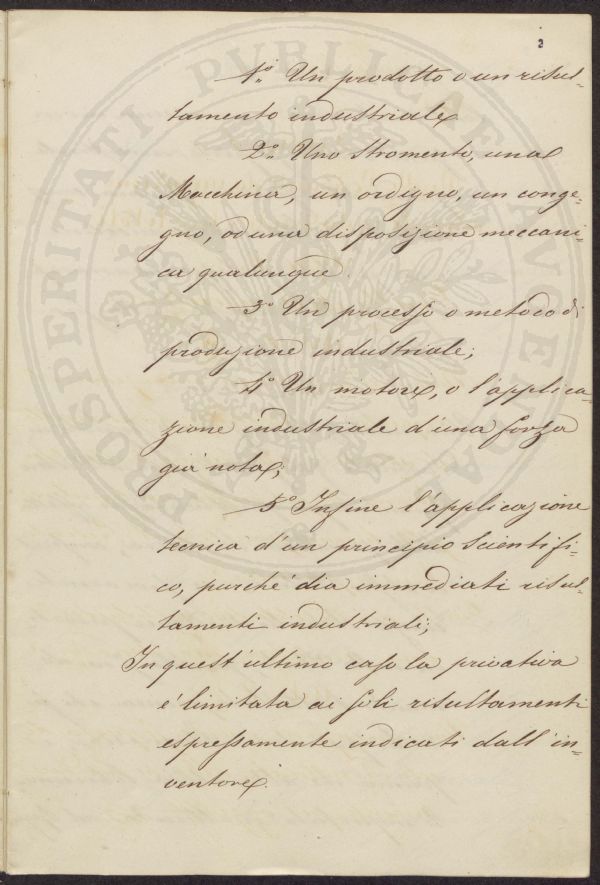 2
1º Un prodotto o un risul-
tamento industriale
2º Uno Stromento, una
Macchina, un ordigno, un conge-
gno, od una disposizione meccani-
ca qualunque.
3º Un processo o metodo di
produzione industriale;
4º Un motore, o l'applica-
zione industriale d'una forza
già nota;
5º Infine l'applicazione
tecnica d'un principio scientifi-
co, purchè dia immediati risul-
tamenti industriali;
In quest'ultimo caso la privativa
è limitata ai soli risultamenti
espressamente indicati dall'in-
ventore.
PROSPERITATI PVBLICAE AVGENDAE